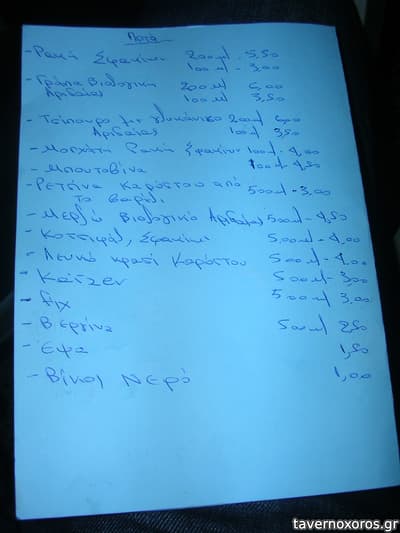 Ποτά
- Ρακή Σφακίων 200ml - 5,50
100ml - 3,00
- Γράπα Βιολογική 200ml 6,00
Αριδαίας 100ml 3,50
- Τσίπουρο με γλυκάνισο 200ml 6,00
Αριδαίας 100ml 3,50
- Μοσχάτη Ρακή Σφακίων 100ml - 4,00
- Μπουτοβίνα 100ml - 4,50
- Ρετσίνα Καρύστου από 500ml - 3,00
το βαρέλι
- Μερλώ Βιολογικό Αριδαίας 500ml - 4,50
- Κοτσιφάλι, Σφακίων 500ml - 4,00
- Λευκό κρασί Καρύστου 500ml - 4,00
- Καίζεν 500ml - 3,00
- Fix 500ml 3,00
- Βεργίνα 500ml 2,50
- Έψα 1,50
- Βίκος Νερό 1,00
tavernoxoros.gr